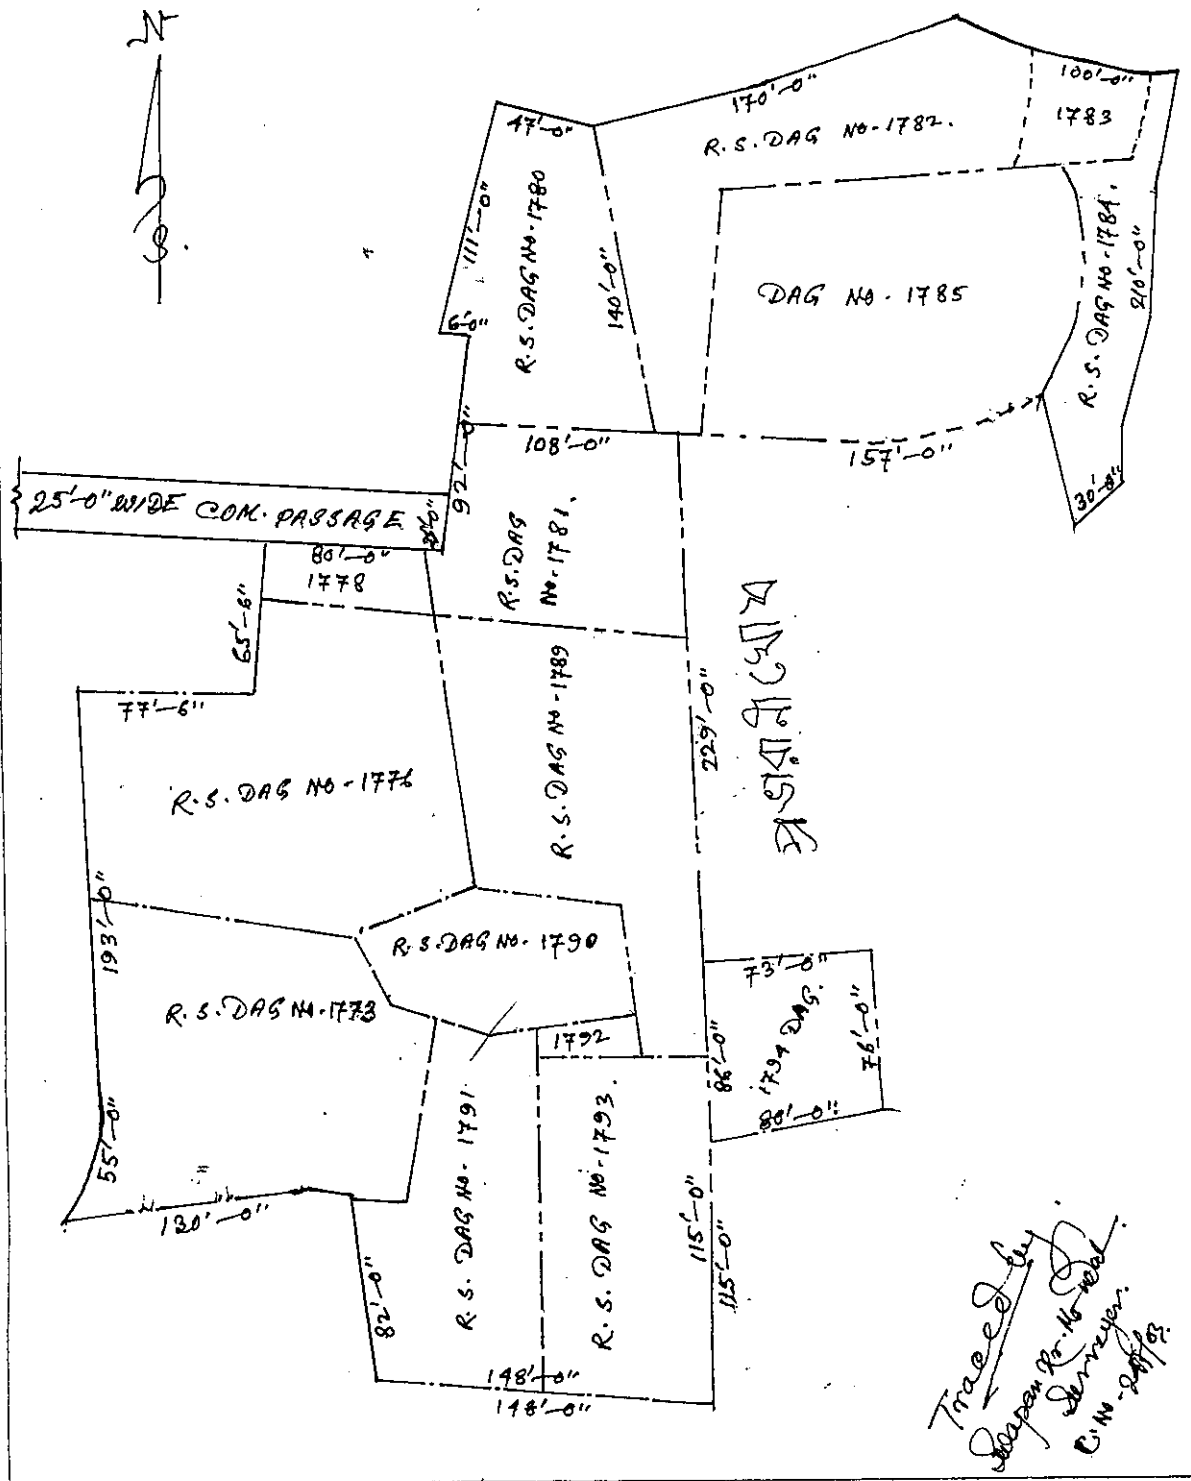 N
S.
170'-0"
100'-0"
1783
47'-0"
R.S. DAG NO-1782.
111'-0"
R.S. DAG NO-1780
140'-0"
DAG NO - 1785
R.S. DAG NO-1784.
210'-0"
6'-0"
108'-0"
157'-0"
30'-0"
92'-0"
25'-0" WIDE COM. PASSAGE
80'-0"
1778
R.S. DAG
NO-1781.
65'-6"
77'-6"
R.S. DAG NO-1789
229'-0"
R.S. DAG NO-1776
193'-0"
R.S. DAG NO. 1790
73'-0"
R.S. DAG NO-1773
1794 DAG.
76'-0"
86'-0"
1792
80'-0"
55'-0"
130'-0"
R.S. DAG NO-1791
R.S. DAG NO-1793.
115'-0"
115'-0"
82'-0"
148'-0"
148'-0"
Traced by
Surveyor.